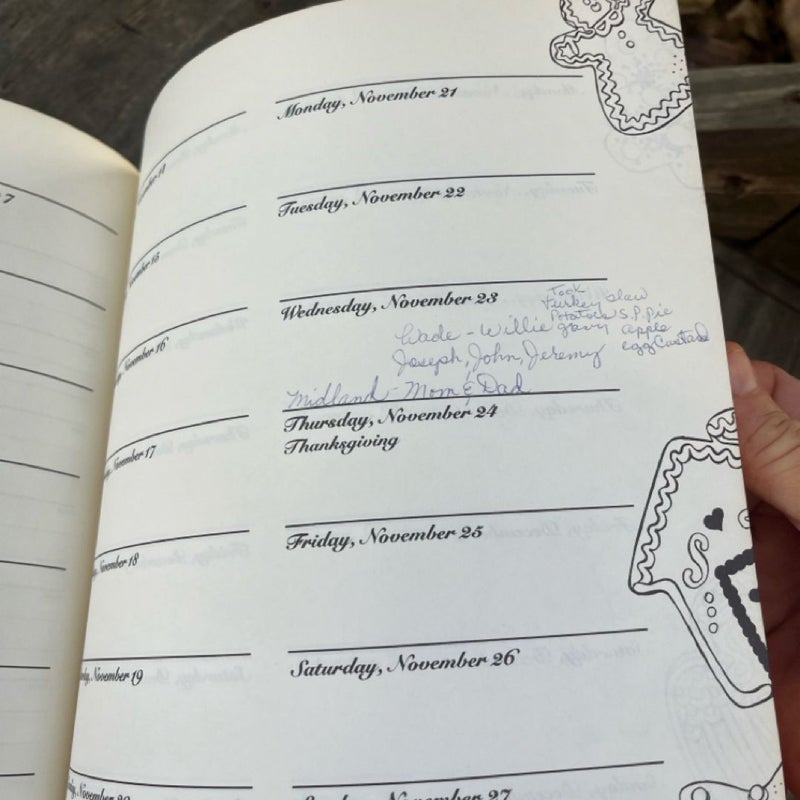 7
November 14
November 15
November 16
November 17
November 18
November 19
Monday, November 21
Tuesday, November 22
Wednesday, November 23
Took
turkey slaw
Potatoes S.P. Pie
Wade - Willie gravy apple
Joseph, John, Jeremy egg Custard
Midland - Mom & Dad
Thursday, November 24
Thanksgiving
Friday, November 25
Saturday, November 26
Sunday, November 27
S